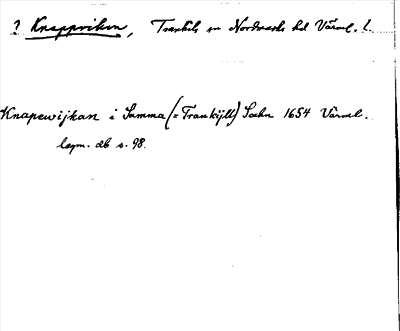 ? Knappviken, Trankils sn Nordmarks hd Värml. l.
Knapewijkan i Samma (= Trankijll) Sochn 1654 Värml.
lagm. db s. 98.